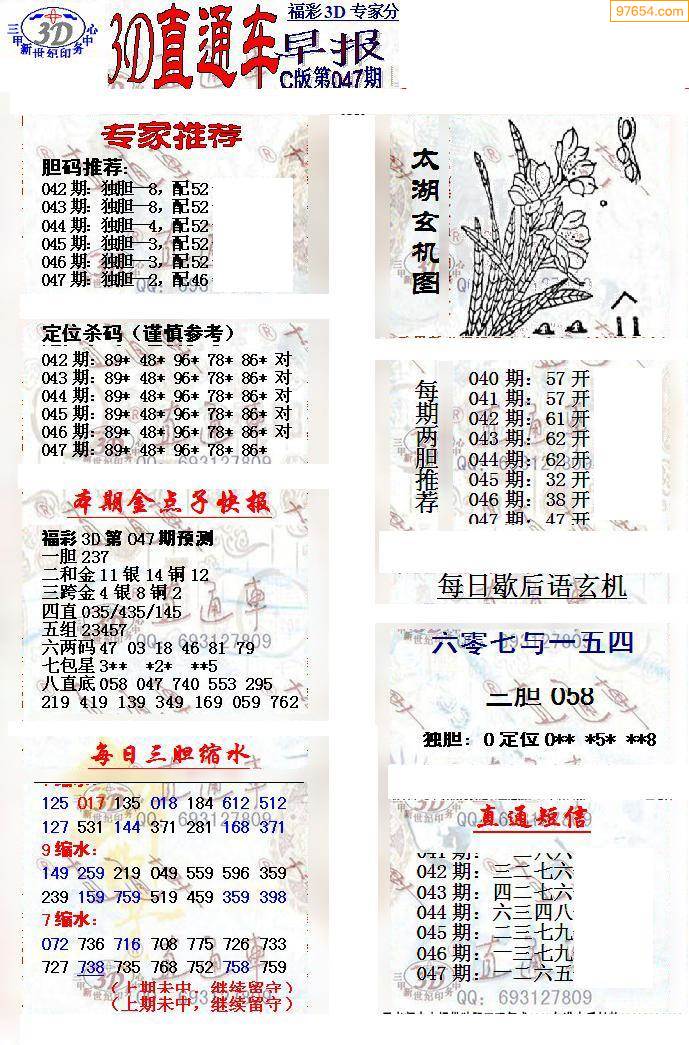 97654.com
三甲 3D 中心
新世纪印务
3D直通车
福彩3D 专家分
早报
C版第047期
专家推荐
胆码推荐:
042期: 独胆—8, 配52
043期: 独胆—8, 配52
044期: 独胆—4, 配52
045期: 独胆—3, 配52
046期: 独胆—3, 配52
047期: 独胆—2, 配46
定位杀码（谨慎参考）
042期: 89* 48* 96* 78* 86* 对
043期: 89* 48* 96* 78* 86* 对
044期: 89* 48* 96* 78* 86* 对
045期: 89* 48* 96* 78* 86* 对
046期: 89* 48* 96* 78* 86* 对
047期: 89* 48* 96* 78* 86*
本期金点子快报
福彩3D第047期预测
一胆237
二和金11银14铜12
三跨金4银8铜2
四直035/435/145
五组23457
六两码47 03 18 46 81 79
七包星3** *2* **5
八直底058 047 740 553 295
219 419 139 349 169 059 762
每日三胆缩水
125 017 135 018 184 612 512
127 531 144 371 281 168 371
9缩水:
149 259 219 049 559 596 359
239 159 759 519 459 359 398
7缩水:
072 736 716 708 775 726 733
727 738 735 768 752 758 759
（上期未中, 继续留守）
（上期未中, 继续留守）
太湖玄机图
每期两胆推荐
040期: 57开
041期: 57开
042期: 61开
043期: 62开
044期: 62开
045期: 32开
046期: 38开
047期: 47开
每日歇后语玄机
六零七与一五四
三胆 058
独胆: 0 定位0** *5* **8
直通短信
042期: 三二七六
043期: 四二七六
044期: 六三四八
045期: 二三七九
046期: 一三七九
047期: 一二六五
QQ: 693127809